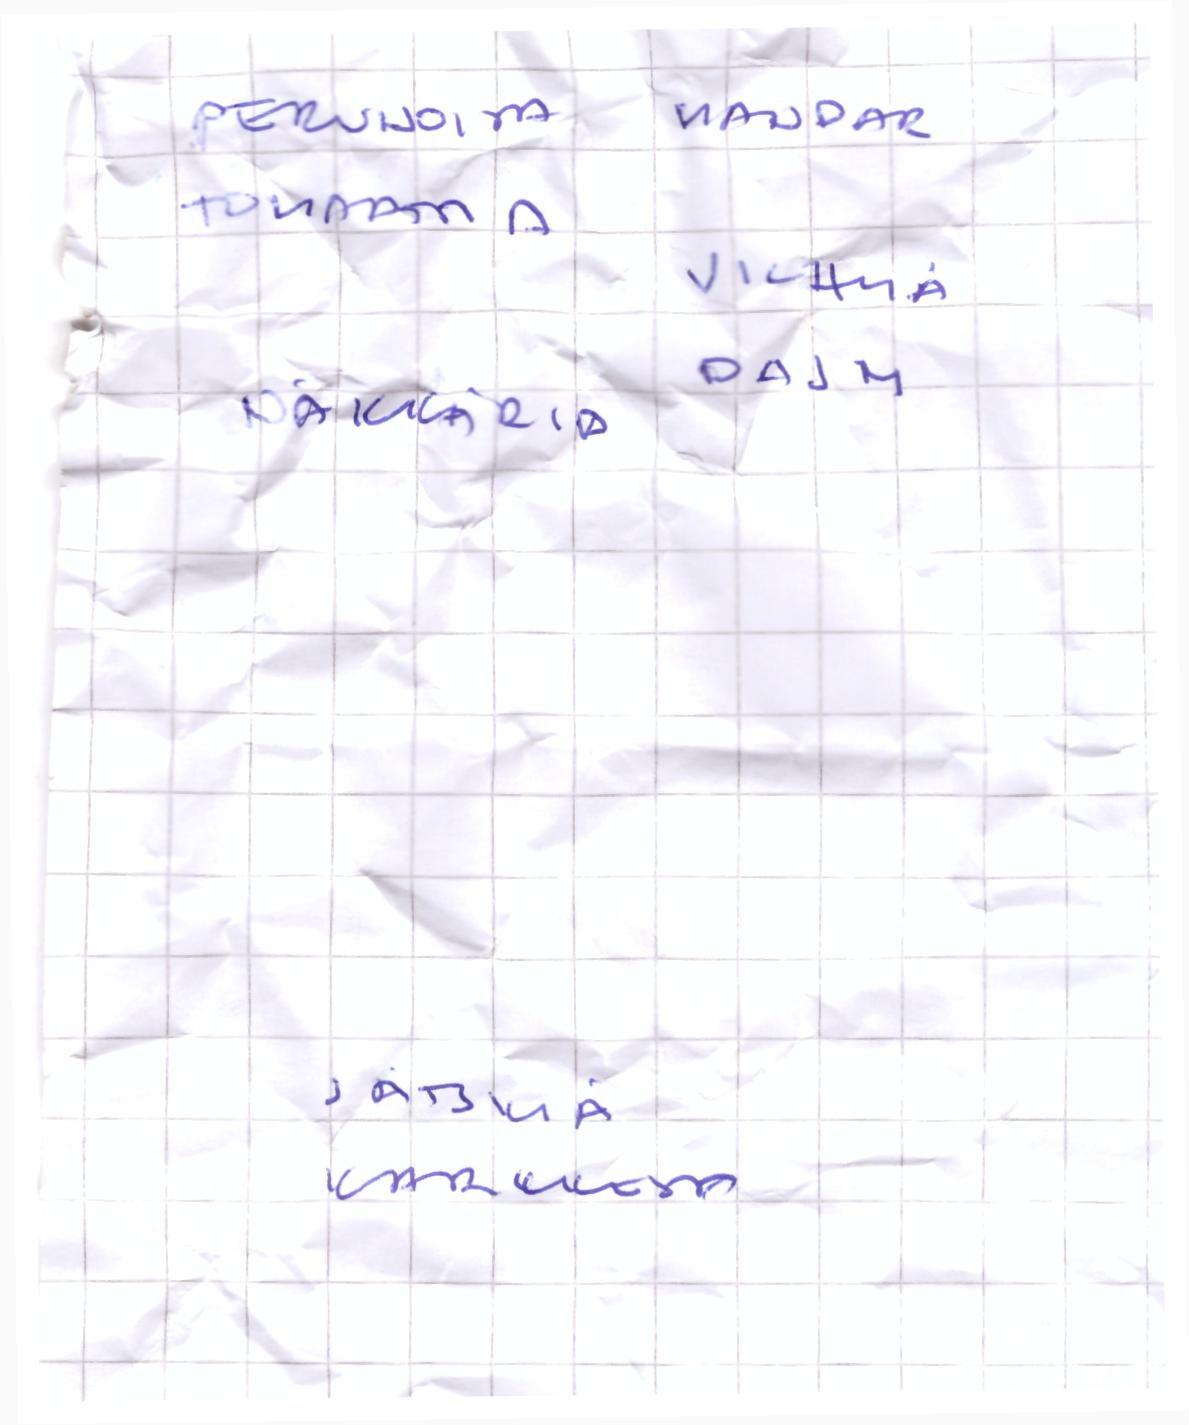 PERUNOITA MANDAR
TOMAATTIA
VICHYÄ
DAJM
NÄKKÄRIÄ
JÄTSKIÄ
KARKKEJA